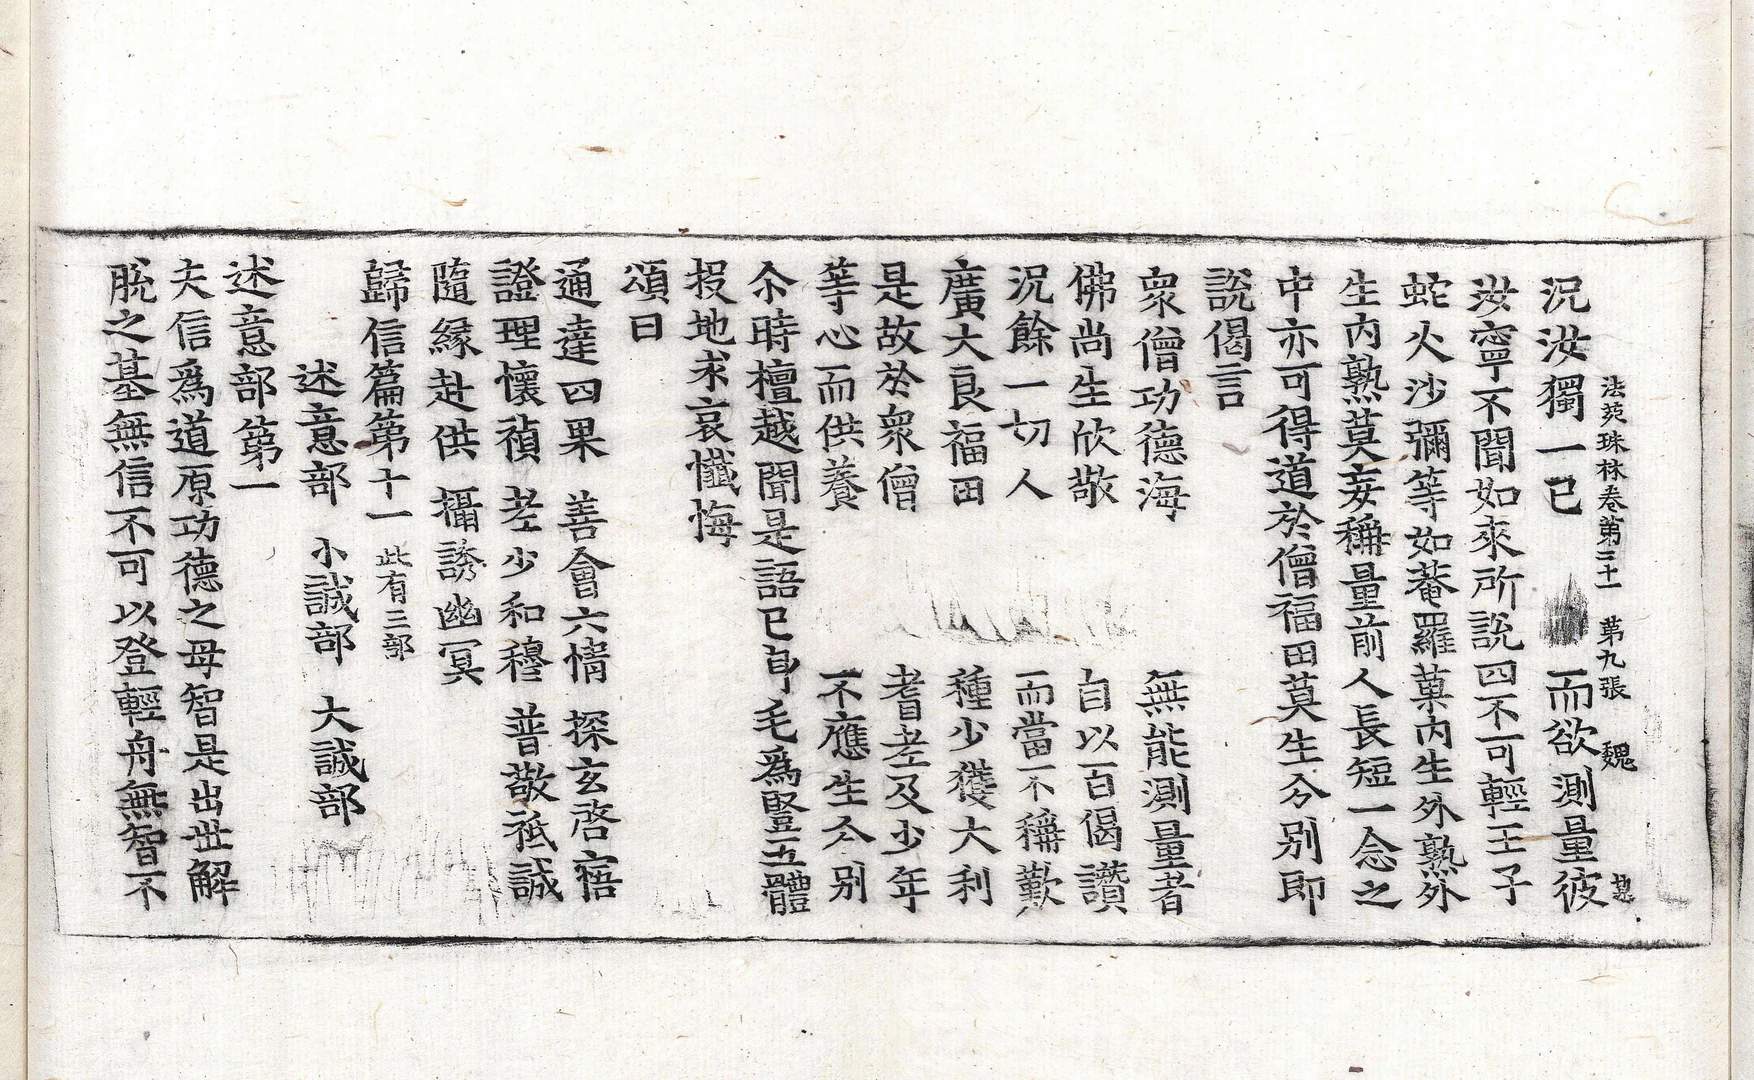 法苑珠林卷第二十一 第九張 魏
况汝獨一己 而欲測量彼
汝寧不聞如來所説四不可輕王子
蛇火沙彌等如菴羅菓内生外熟外
生内熟莫妄稱量前人長短一念之
中亦可得道於僧福田莫生分别即
説偈言
衆僧功德海 無能測量者
佛尚生欣敬 自以百偈讚
况餘一切人 而當不稱歎
廣大良福田 種少獲大利
是故於衆僧 耆老及少年
等心而供養 不應生分别
尒時檀越聞是語已身毛爲竪五體
投地求哀懺悔
頌曰
通達四果 善會六情 探玄啓寤
證理懷禎 老少和穆 普敬祗誠
隨緣赴供 攝誘幽冥
歸信篇第十一 此有三部
述意部 小誠部 大誠部
述意部第一
夫信爲道原功德之母智是出世解
脱之基無信不可以登輕舟無智不